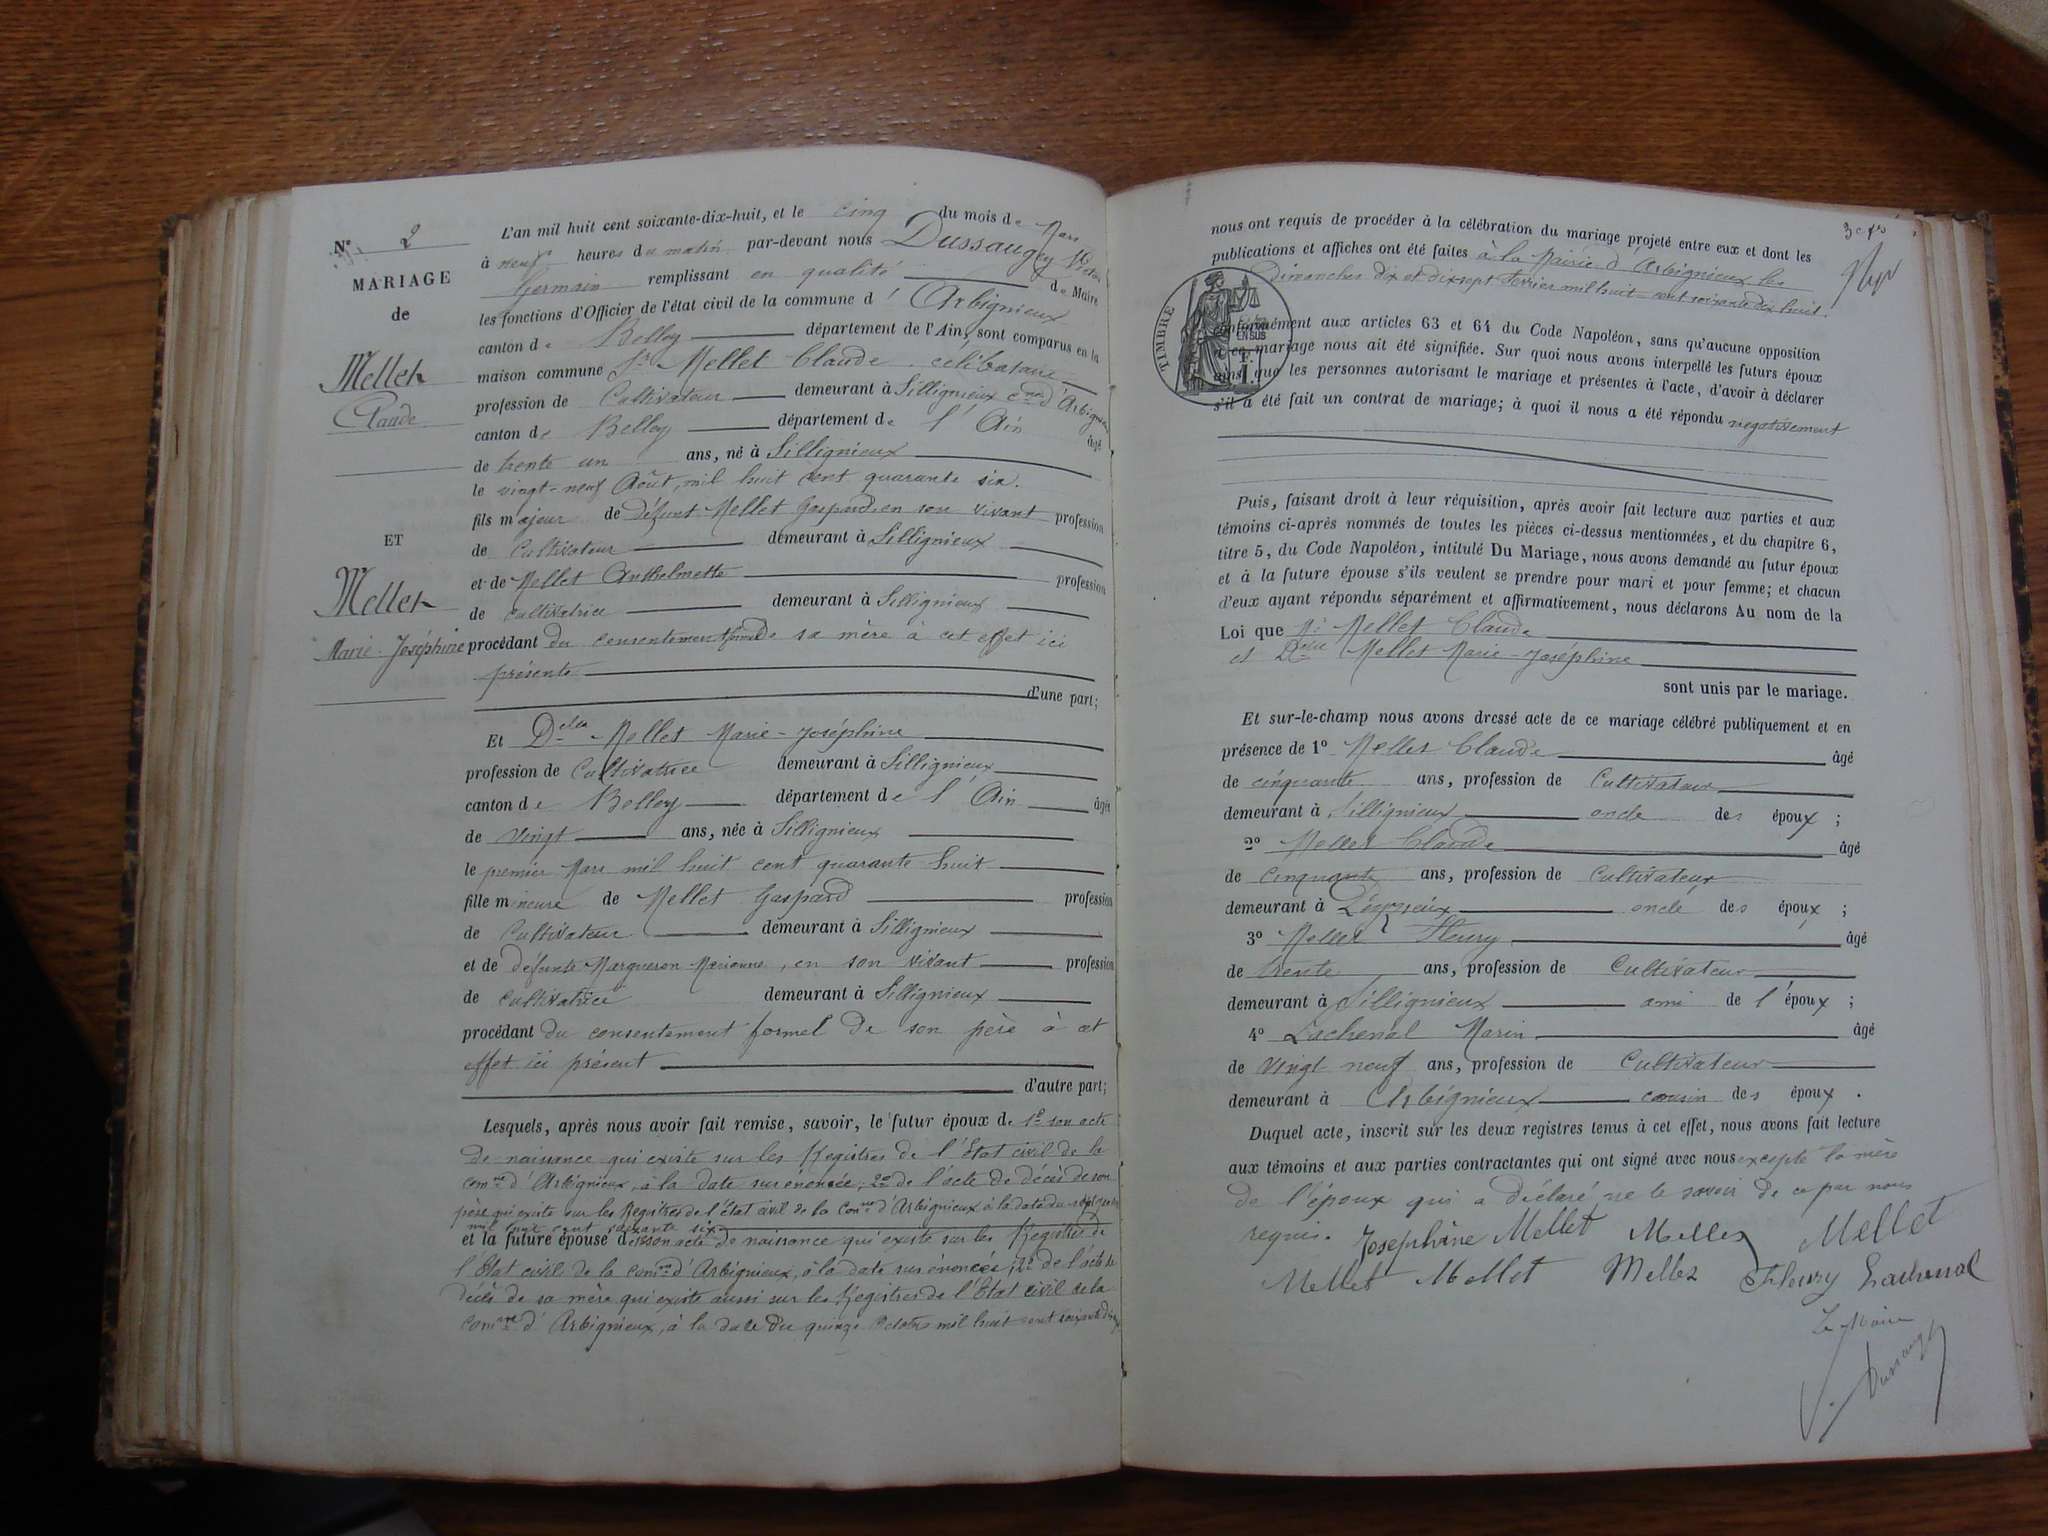 N° 2
MARIAGE
de
Mellet
Claude
ET
Mellet
Marie-Joséphine
L'an mil huit cent soixante-dix-huit, et le cinq du mois de Mars
à neuf heures du matin par-devant nous Dussaugey Victor
Germain remplissant en qualité de Maire
les fonctions d'Officier de l'état civil de la commune d' Arbignieux
canton de Belley département de l'Ain, sont comparus en la
maison commune Sr Mellet Claude, célibataire
profession de Cultivateur demeurant à Sillignieux cne d'Arbignieux
canton de Belley département de l'Ain âgé
de trente un ans, né à Sillignieux
le vingt-neuf Août, mil huit cent quarante six.
fils majeur de défunt Mellet Gaspard en son vivant profession
de Cultivateur demeurant à Sillignieux
et de Mellet Anthelmette profession
de cultivatrice demeurant à Sillignieux
procédant du consentement formel de sa mère à cet effet ici
présente
d'une part;
Et Delle Mellet Marie-Joséphine
profession de Cultivatrice demeurant à Sillignieux
canton de Belley département de l'Ain âgée
de vingt ans, née à Sillignieux
le premier Mars mil huit cent quarante huit
fille mineure de Mellet Gaspard profession
de Cultivateur demeurant à Sillignieux
et de défunte Margueron Marianne, en son vivant profession
de cultivatrice demeurant à Sillignieux
procédant du consentement formel de son père à cet
effet ici présent
d'autre part;
Lesquels, après nous avoir fait remise, savoir, le futur époux de 1° son acte
de naissance qui existe sur les Registres de l'Etat civil de la
comne d'Arbignieux, à la date sus énoncée; 2° de l'acte de décès de son
père qui existe sur les Registres de l'état civil de la comne d'Arbignieux à la date du
mil huit cent soixante six
et la future épouse de son acte de naissance qui existe sur les Registres de
l'Etat civil de la comne d'Arbignieux, à la date sus énoncée; 2° de l'acte de
décès de sa mère qui existe aussi sur les Registres de l'Etat civil de la
comne d'Arbignieux, à la date du quinze Octobre mil huit cent soixante dix
3e
nous ont requis de procéder à la célébration du mariage projeté entre eux et dont les
publications et affiches ont été faites à la Mairie d'Arbignieux les
Dimanches dix et dix sept Février mil huit cent soixante dix huit.
TIMBRE
conformément aux articles 63 et 64 du Code Napoléon, sans qu'aucune opposition
à ce mariage nous ait été signifiée. Sur quoi nous avons interpellé les futurs époux
ainsi que les personnes autorisant le mariage et présentes à l'acte, d'avoir à déclarer
s'il a été fait un contrat de mariage; à quoi il nous a été répondu négativement
Puis, faisant droit à leur réquisition, après avoir fait lecture aux parties et aux
témoins ci-après nommés de toutes les pièces ci-dessus mentionnées, et du chapitre 6,
titre 5, du Code Napoléon, intitulé Du Mariage, nous avons demandé au futur époux
et à la future épouse s'ils veulent se prendre pour mari et pour femme; et chacun
d'eux ayant répondu séparément et affirmativement, nous déclarons Au nom de la
Loi que Mr Mellet Claude
et Delle Mellet Marie-Joséphine
sont unis par le mariage.
Et sur-le-champ nous avons dressé acte de ce mariage célébré publiquement et en
présence de 1° Mellet Claude âgé
de cinquante ans, profession de Cultivateur
demeurant à Sillignieux oncle des époux;
2° Mellet Claude âgé
de cinquante ans, profession de Cultivateur
demeurant à oncle des époux;
3° Mellet Fleury âgé
de trente ans, profession de Cultivateur
demeurant à Sillignieux ami de l'époux;
4° Lachenal Marin âgé
de vingt neuf ans, profession de Cultivateur
demeurant à Arbignieux cousin des époux.
Duquel acte, inscrit sur les deux registres tenus à cet effet, nous avons fait lecture
aux témoins et aux parties contractantes qui ont signé avec nous excepté la mère
de l'époux qui a déclaré ne le savoir de ce par nous
requis. Joséphine Mellet Mellet Mellet
Mellet Mellet Mellet Fleury Lachenal
Le Maire
Dussaugey